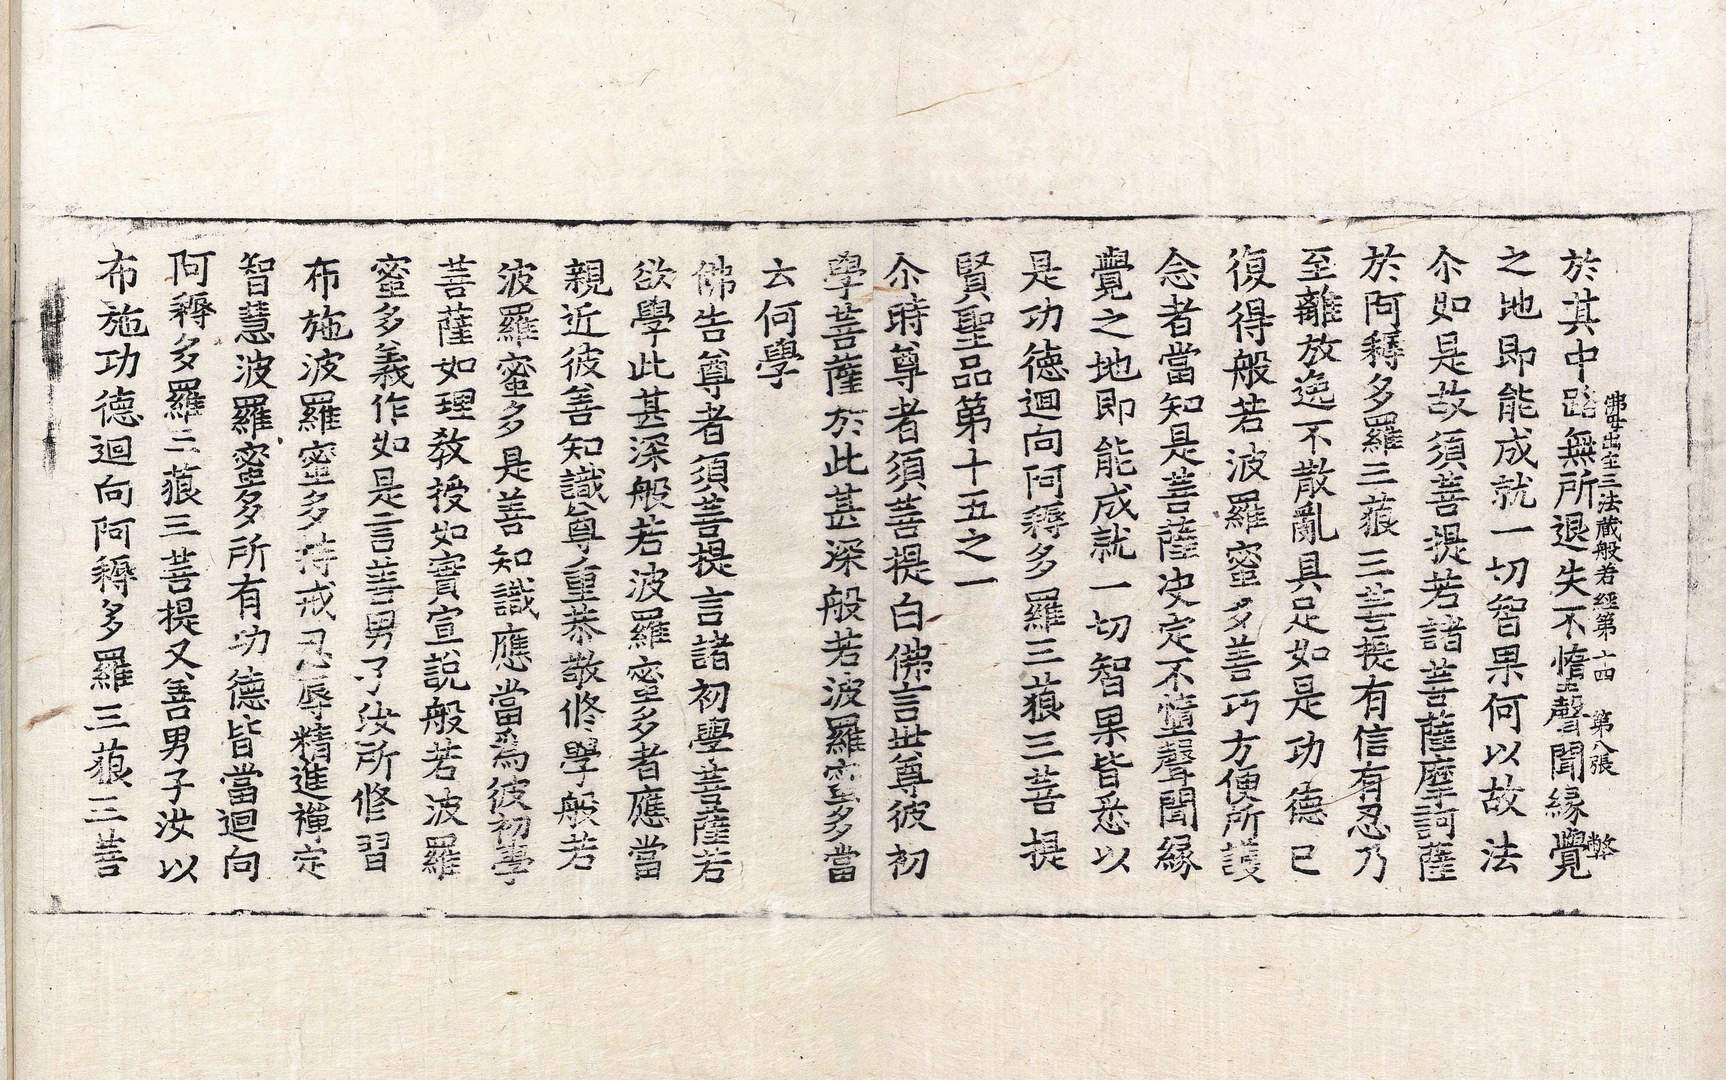 佛母出生三法藏般若經第十四　第八張　弊
於其中路無所退失不墮聲聞緣覺
之地即能成就一切智果何以故法
尒如是故須菩提若諸菩薩摩訶薩
於阿耨多羅三藐三菩提有信有忍乃
至離放逸不散亂具足如是功德已
復得般若波羅蜜多善巧方便所護
念者當知是菩薩決定不墮聲聞緣
覺之地即能成就一切智果皆悉以
是功德迴向阿耨多羅三藐三菩提
賢聖品第十五之一
尒時尊者須菩提白佛言世尊彼初
學菩薩於此甚深般若波羅蜜多當
云何學
佛告尊者須菩提言諸初學菩薩若
欲學此甚深般若波羅蜜多者應當
親近彼善知識尊重恭敬修學般若
波羅蜜多是善知識應當爲彼初學
菩薩如理教授如實宣說般若波羅
蜜多義作如是言善男子汝所修習
布施波羅蜜多持戒忍辱精進禪定
智慧波羅蜜多所有功德皆當迴向
阿耨多羅三藐三菩提又善男子汝以
布施功德迴向阿耨多羅三藐三菩